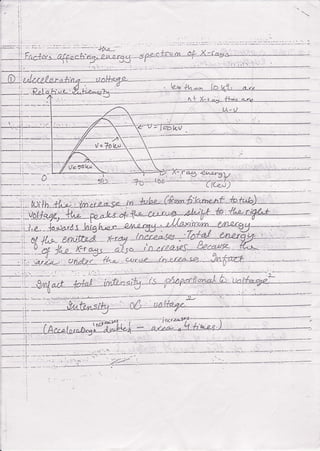 the
Factors affecting energy spectrum of X-rays
① accelerating voltage
Relative Intensity
less than 10 kV are
not X-ray, they are
U-V
V = 100kv
V = 70kv
V = 50kv
0
50
70
100
X-ray energy
(KeV)
With the increase in tube (from filament to tub)
voltage, the peaks of the curve shift to the right
i.e. towards higher energy. Maximum energy
of the emitted X-ray increases. Total energy
of the X-rays also increases because the
area under the curve increase. Infact
Infact total intensity is proportional to voltage²
Intensity ∝ voltage²
(Accelerating doubled – area 4 times)
increases